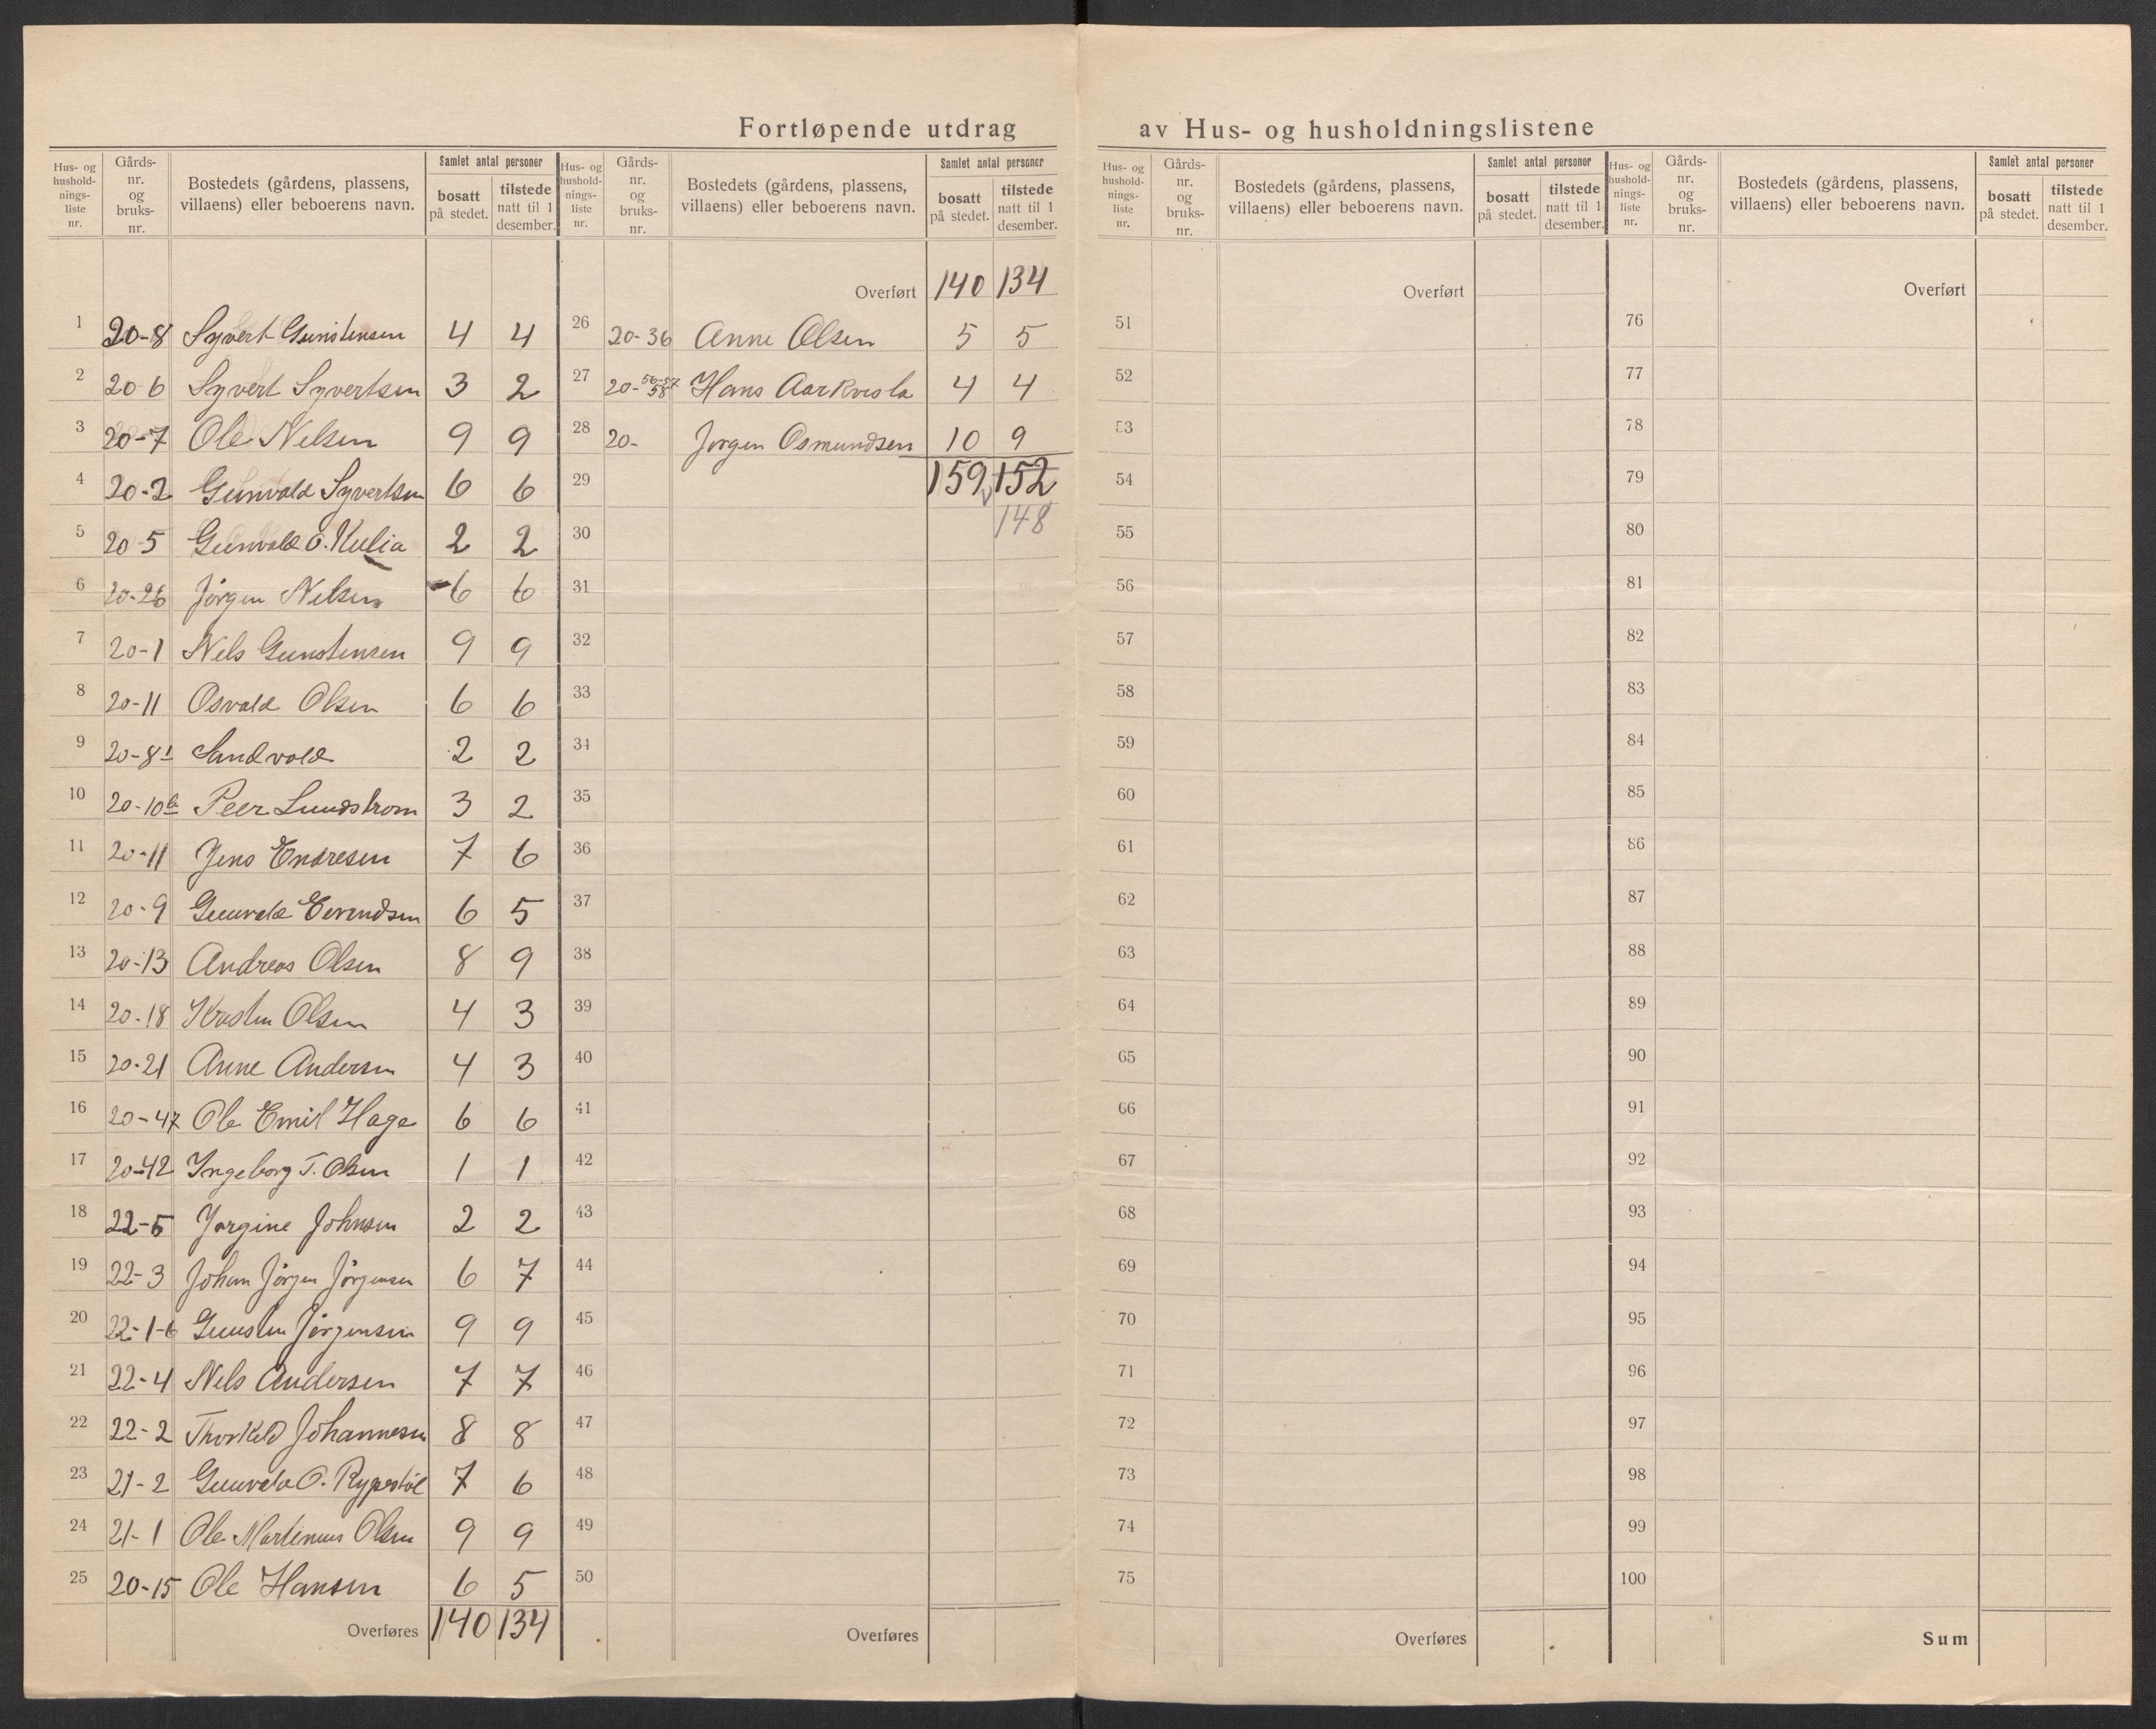 Fortløpende utdrag av Hus- og husholdningslistene
Hus- og husholdnings- liste nr. | Gårds- nr. og bruks- nr. | Bostedets (gårdens, plassens, villaens) eller beboerens navn. | Samlet antal personer | bosatt på stedet. | tilstede natt til 1 desember.
1 20-8 Syvert Gunstensen 4 4
2 20 6 Syvert Syvertsen 3 2
3 20-7 Ole Nelsen 9 9
4 20-2 Gunvald Syvertsen 6 6
5 20-5 Gunvald O. Kulia 2 2
6 20-26 Jørgen Nelsen 6 6
7 20-1 Nels Gunstensen 9 9
8 20-11 Osvald Olsen 6 6
9 20-8 Sandvold 2 2
10 20-10 Peer Lundstrom 3 2
11 20-11 Jens Endresen 7 6
12 20-9 Gunvald Evendsen 6 5
13 20-13 Andreas Olsen 8 9
14 20-18 Kristen Olsen 4 3
15 20-21 Anne Andersen 4 3
16 20-47 Ole Emil Hage 6 6
17 20-42 Ingeborg T. Olsen 1 1
18 22-5 Jorgine Johnsen 2 2
19 22-3 Johan Jørgen Jørgensen 6 7
20 22-1-6 Gunsten Jørgensen 9 9
21 22-4 Nels Andersen 7 7
22 22-2 Thorkild Johannesen 8 8
23 21-2 Gunvald O. Rypestöl 7 6
24 21-1 Ole Martinius Olsen 9 9
25 20-15 Ole Hansen 6 5
Overføres 140 134
Hus- og husholdnings- liste nr. | Gårds- nr. og bruks- nr. | Bostedets (gårdens, plassens, villaens) eller beboerens navn. | Samlet antal personer | bosatt på stedet. | tilstede natt til 1 desember.
Overført 140 134
26 20-36 Anne Olsen 5 5
27 20-56-57 58 Hans Aarkvisla 4 4
28 20- Jørgen Osmundsen 10 9
29 159 152
148
30
31
32
33
34
35
36
37
38
39
40
41
42
43
44
45
46
47
48
49
50
Overføres
Hus- og husholdnings- liste nr. | Gårds- nr. og bruks- nr. | Bostedets (gårdens, plassens, villaens) eller beboerens navn. | Samlet antal personer | bosatt på stedet. | tilstede natt til 1 desember.
Overført
51
52
53
54
55
56
57
58
59
60
61
62
63
64
65
66
67
68
69
70
71
72
73
74
75
Overføres
Hus- og husholdnings- liste nr. | Gårds- nr. og bruks- nr. | Bostedets (gårdens, plassens, villaens) eller beboerens navn. | Samlet antal personer | bosatt på stedet. | tilstede natt til 1 desember.
Overført
76
77
78
79
80
81
82
83
84
85
86
87
88
89
90
91
92
93
94
95
96
97
98
99
100
Sum